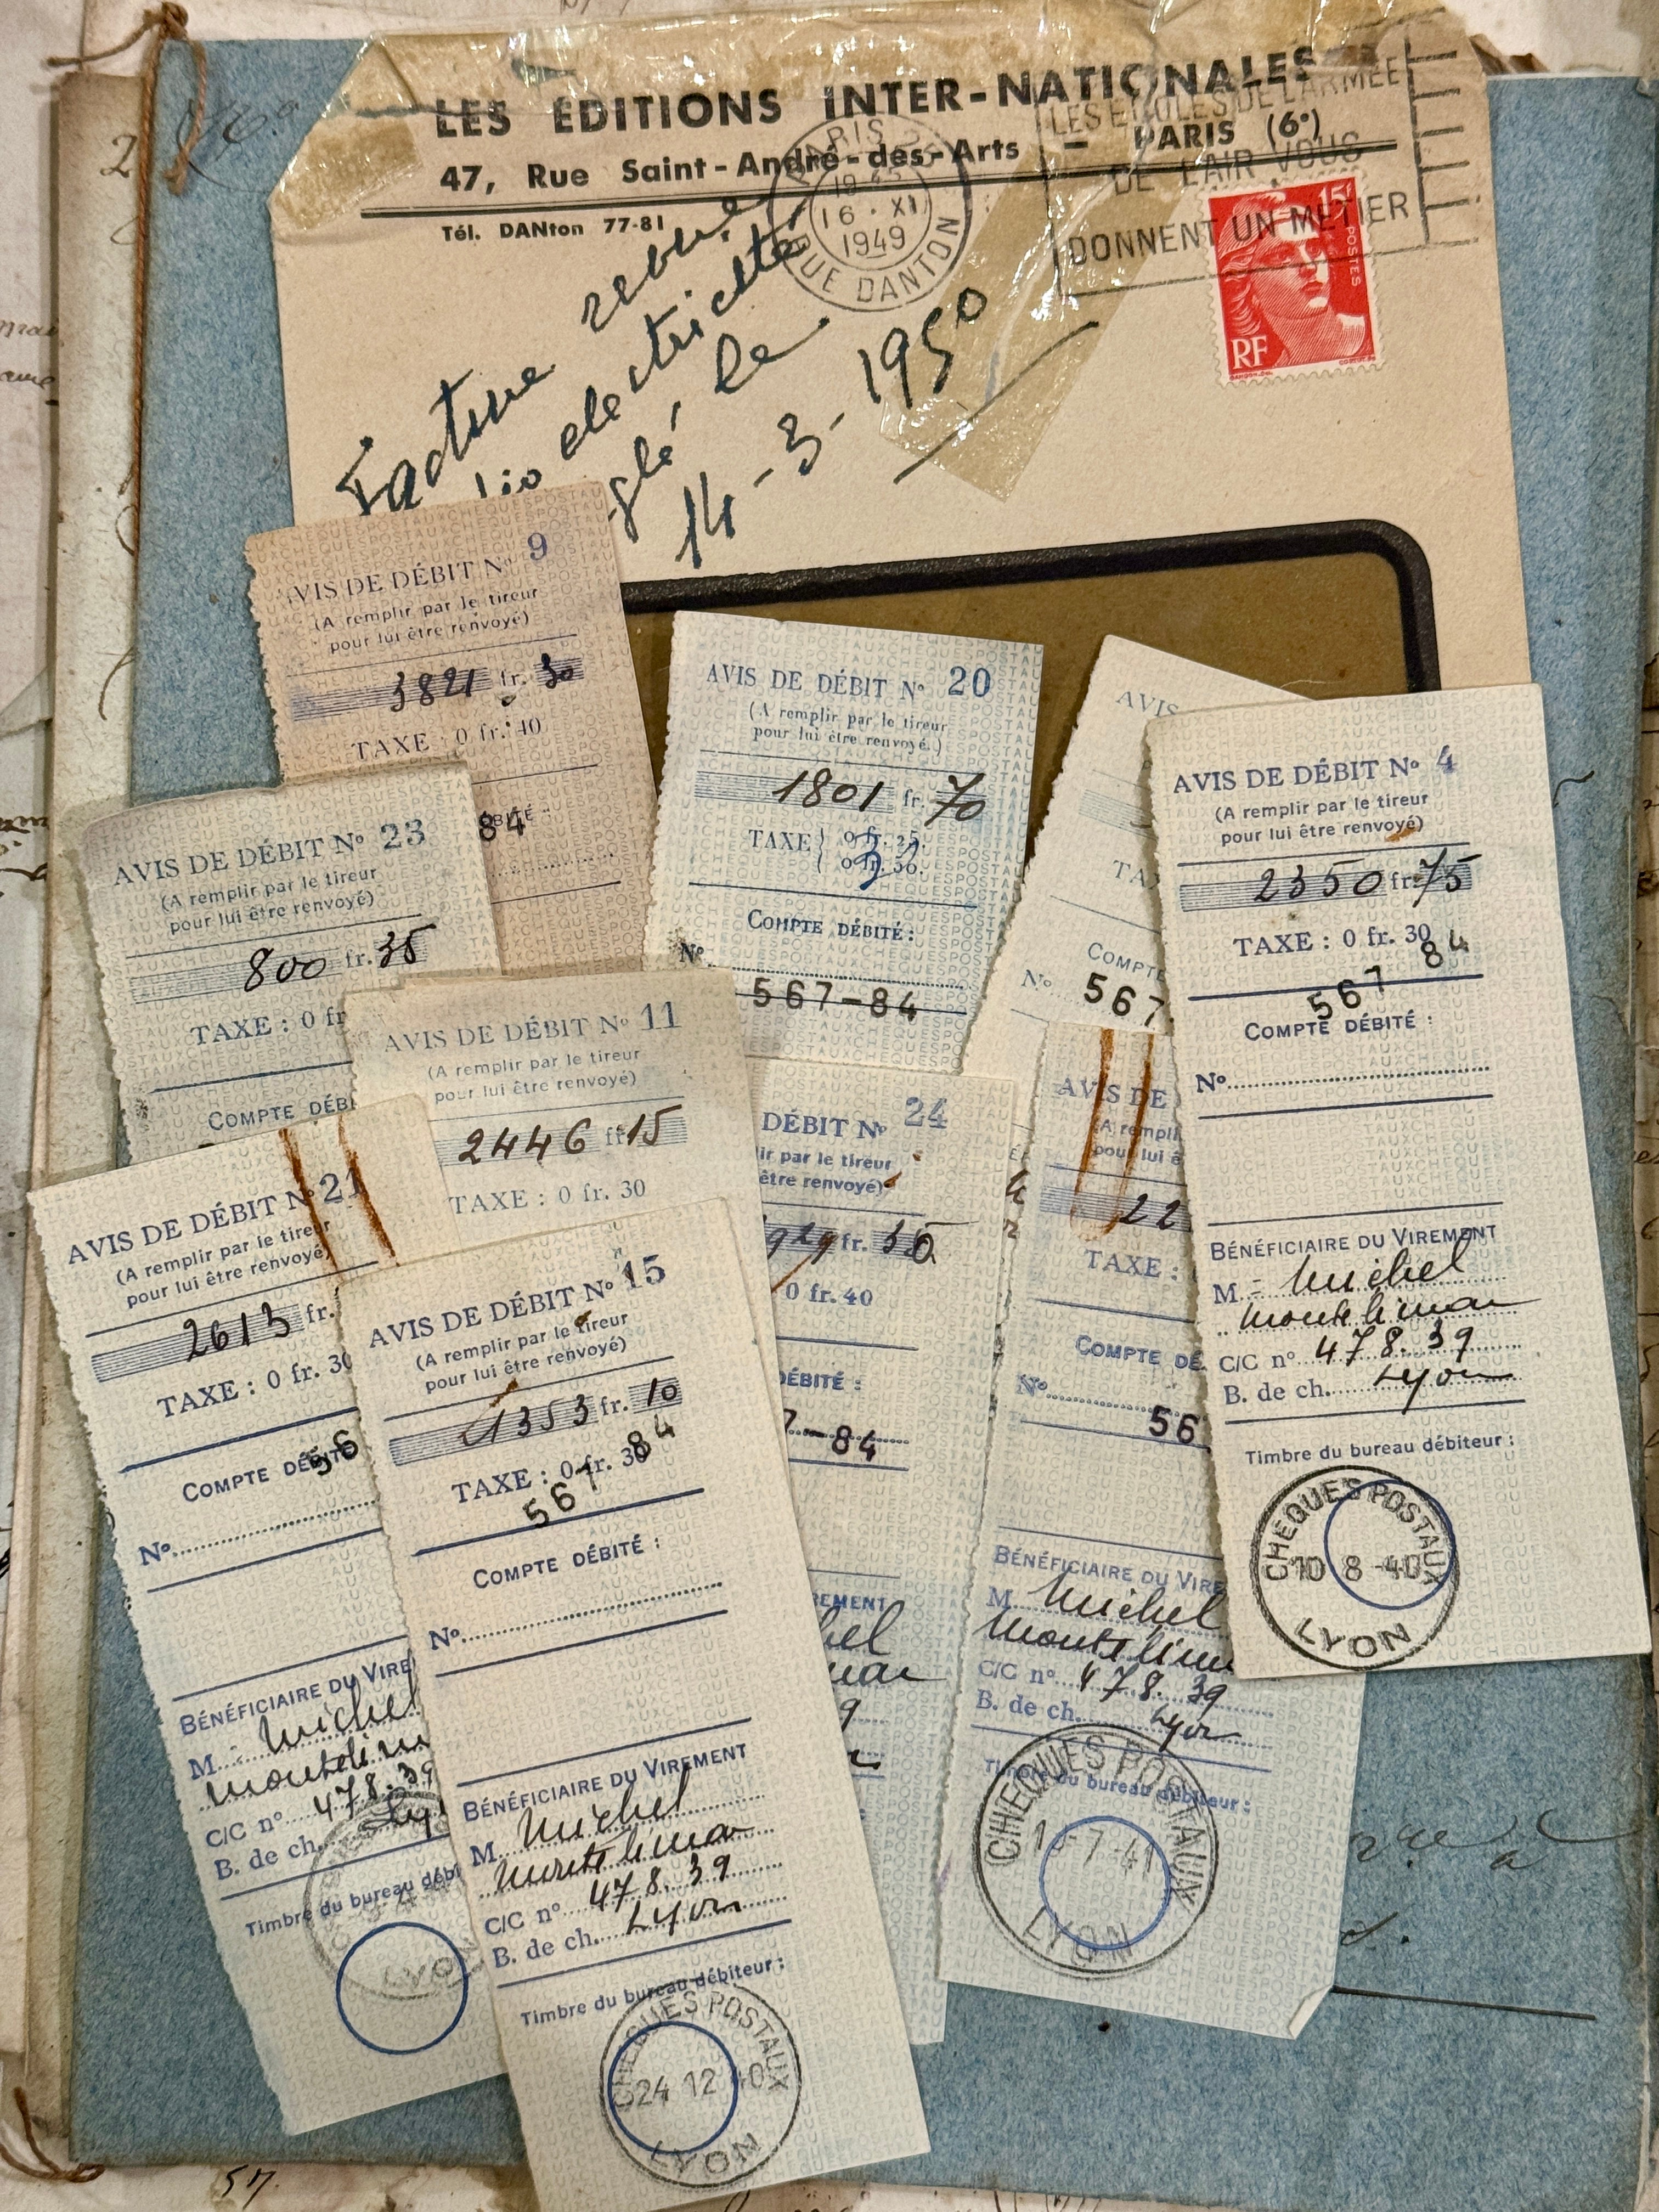 LES ÉDITIONS INTER-NATIONALES
47, Rue Saint-André-des-Arts — PARIS (6e)
Tél. DANton 77-81
PARIS
16 · XI
1949
RUE DANTON
LES ECOLES DE L'ARMEE
DE L'AIR VOUS
DONNENT UN METIER
15F
POSTES
RF
Facture revue
electricité
glé le
14-3-1950
AVIS DE DÉBIT No 9
(A remplir par le tireur
pour lui être renvoyé)
3821 fr. 30
TAXE : 0 fr. 40
84
AVIS DE DÉBIT No 20
(A remplir par le tireur
pour lui être renvoyé.)
1801 fr. 70
TAXE
COMPTE DÉBITÉ :
No
567-84
AVIS
TA
COMPTE
No
567
AVIS DE DÉBIT No 4
(A remplir par le tireur
pour lui être renvoyé)
2350 fr. 75
TAXE : 0 fr. 30
567 84
COMPTE DÉBITÉ :
No
BÉNÉFICIAIRE DU VIREMENT
M. Michel
Montelimar
C/C no 478.39
B. de ch. Lyon
Timbre du bureau débiteur :
CHEQUES POSTAUX
10 8 -40
LYON
AVIS DE DÉBIT No 23
(A remplir par le tireur
pour lui être renvoyé)
800 fr. 35
TAXE : 0 fr
COMPTE DÉB
AVIS DE DÉBIT No 11
(A remplir par le tireur
pour lui être renvoyé)
2446 fr 15
TAXE : 0 fr. 30
DÉBIT No 24
ir par le tireur
être renvoyé)
929 fr.
0 fr. 40
DÉBITÉ :
7-84
REMENT
hel
mar
9
AVIS DE
(A rempli
pour lui ê
22
TAXE :
COMPTE DÉ
No
56
BÉNÉFICIAIRE DU VIRE
M. Michel
Montelima
C/C no 478.39
B. de ch. Lyon
Timbre du bureau débiteur :
CHEQUES POSTAUX
7-41
LYON
AVIS DE DÉBIT No 21
(A remplir par le tireur
pour lui être renvoyé)
2613 fr.
TAXE : 0 fr. 30
COMPTE DÉBITÉ
56
No
BÉNÉFICIAIRE DU VIRE
M. Michel
Montelim
C/C no 478.39
B. de ch. Ly
Timbre du bureau débi
LYON
AVIS DE DÉBIT No 15
(A remplir par le tireur
pour lui être renvoyé)
1353 fr. 10
TAXE : 0 fr. 30
567 84
COMPTE DÉBITÉ :
No
BÉNÉFICIAIRE DU VIREMENT
M. Michel
Montelimar
C/C no 478.39
B. de ch. Lyon
Timbre du bureau débiteur :
CHEQUES POSTAUX
24 12 40
LYON